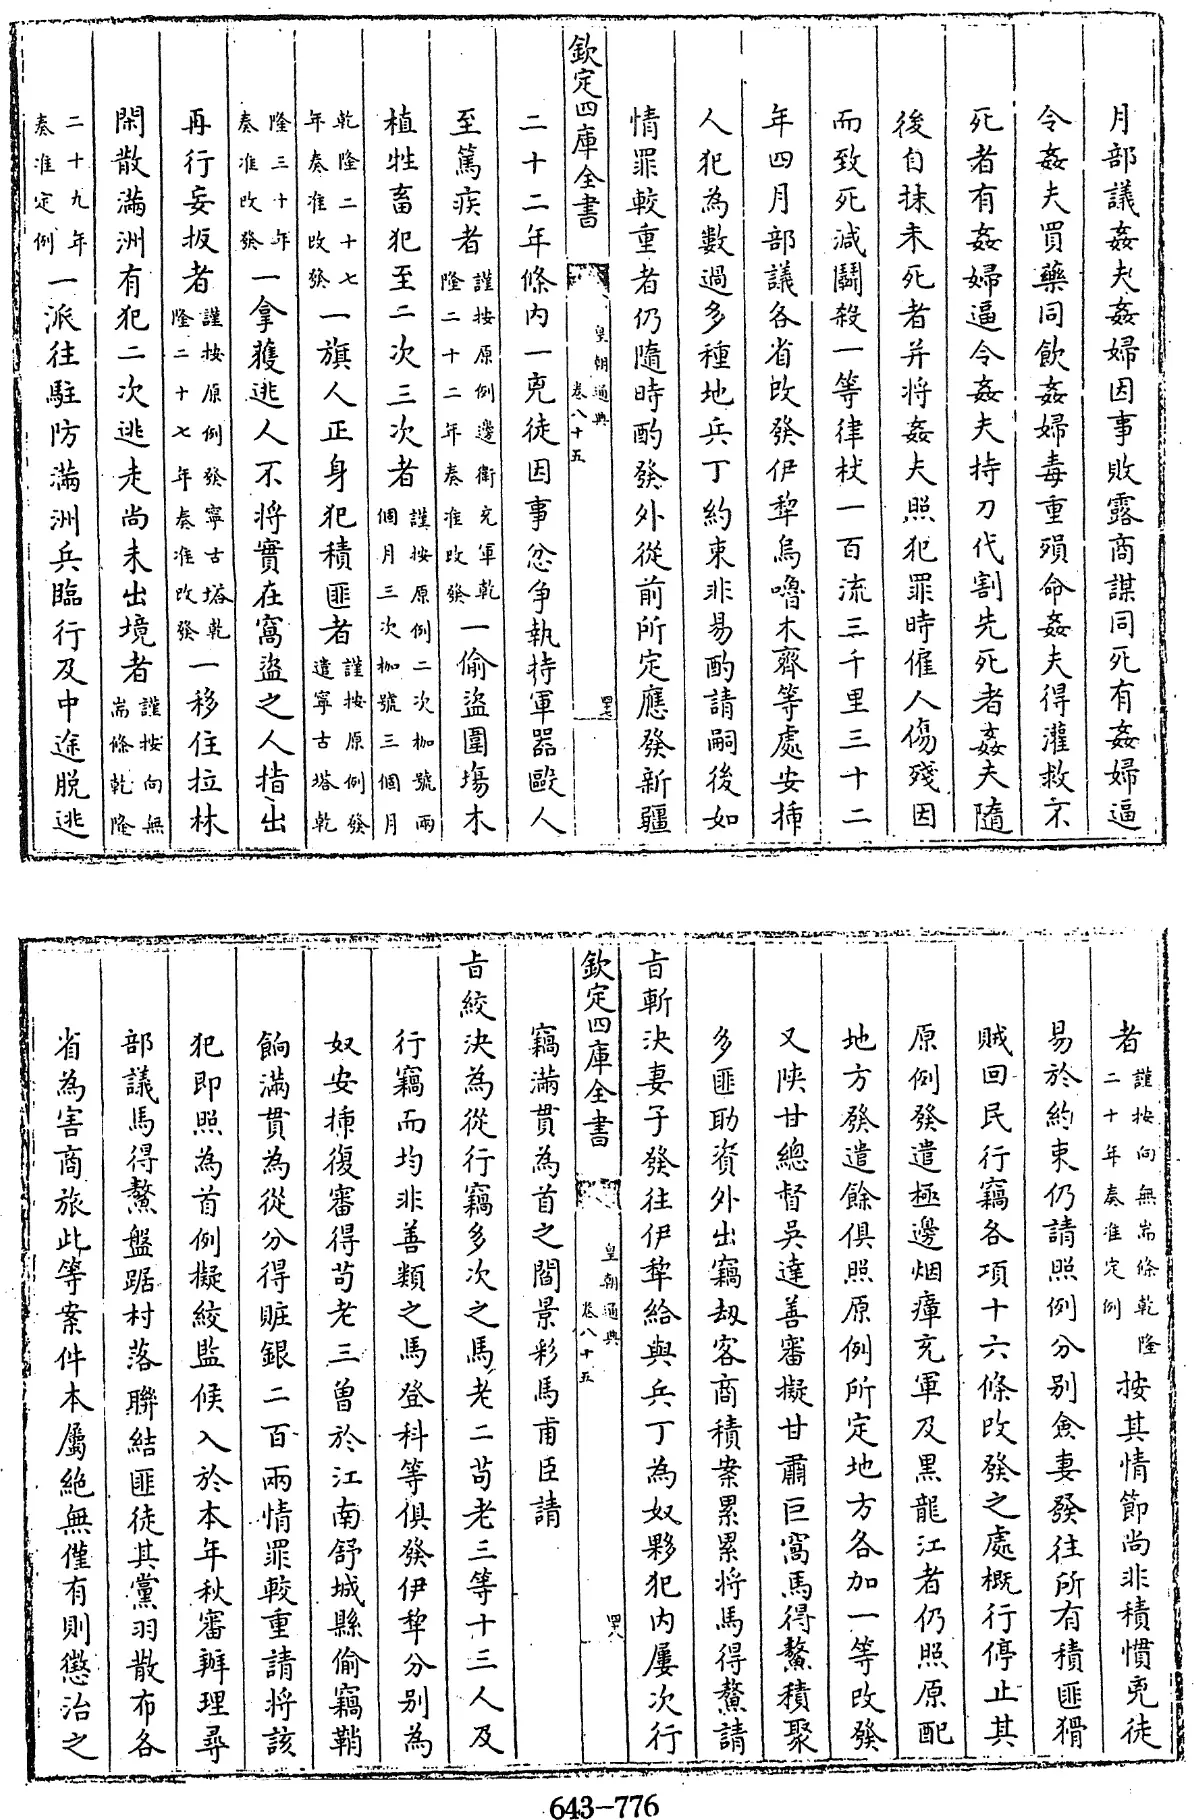 月部議姦夫姦婦因事敗露商謀同死有姦婦逼
令姦夫買藥同飲姦婦毒重殞命姦夫得灌救不
死者有姦婦逼令姦夫持刀代割先死者姦夫隨
後自抹未死者并将姦夫照犯罪時僱人傷殘因
而致死減鬭殺一等律杖一百流三千里三十二
年四月部議各省改發伊犂烏嚕木齊等處安插
人犯為數過多種地兵丁約束非易酌請嗣後如
情罪較重者仍隨時酌發外從前所定應發新疆
欽定四庫全書
皇朝通典
卷八十五
四七
二十二年條内一兇徒因事忿争執持軍器毆人
至篤疾者謹按原例邊衛充軍乾隆二十二年奏准改發一偷盜圍塲木
植牲畜犯至二次三次者謹按原例二次枷號兩個月三次枷號三個月
乾隆二十七年奏准改發一旗人正身犯積匪者謹按原例發遣寧古塔乾
隆三十年奏准改發一拿獲逃人不将實在窩盜之人指出
再行妄扳者謹按原例發寧古塔乾隆二十七年奏准改發一移住拉林
閑散滿洲有犯二次逃走尚未出境者謹按向無耑條乾隆
二十九年奏准定例一派往駐防滿洲兵臨行及中途脱逃
者謹按向無耑條乾隆二十年奏准定例按其情節尚非積慣兇徒
易於約束仍請照例分别僉妻發往所有積匪猾
賊回民行竊各項十六條改發之處概行停止其
原例發遣極邊烟瘴充軍及黑龍江者仍照原配
地方發遣餘俱照原例所定地方各加一等改發
又陝甘總督吳達善審擬甘肅巨窩馬得鰲積聚
多匪助資外出竊刼客商積案累累将馬得鰲請
旨斬決妻子發往伊犂給與兵丁為奴夥犯内屢次行
欽定四庫全書
皇朝通典
卷八十五
四八
竊滿貫為首之閻景彩馬甫臣請
旨絞決為從行竊多次之馬老二苟老三等十三人及
行竊而均非善類之馬登科等俱發伊犂分别為
奴安插復審得苟老三曾於江南舒城縣偷竊鞘
餉滿貫為從分得賍銀二百兩情罪較重請将該
犯即照為首例擬絞監候入於本年秋審辦理尋
部議馬得鰲盤踞村落聯結匪徒其黨羽散布各
省為害商旅此等案件本屬絶無僅有則懲治之
643-776